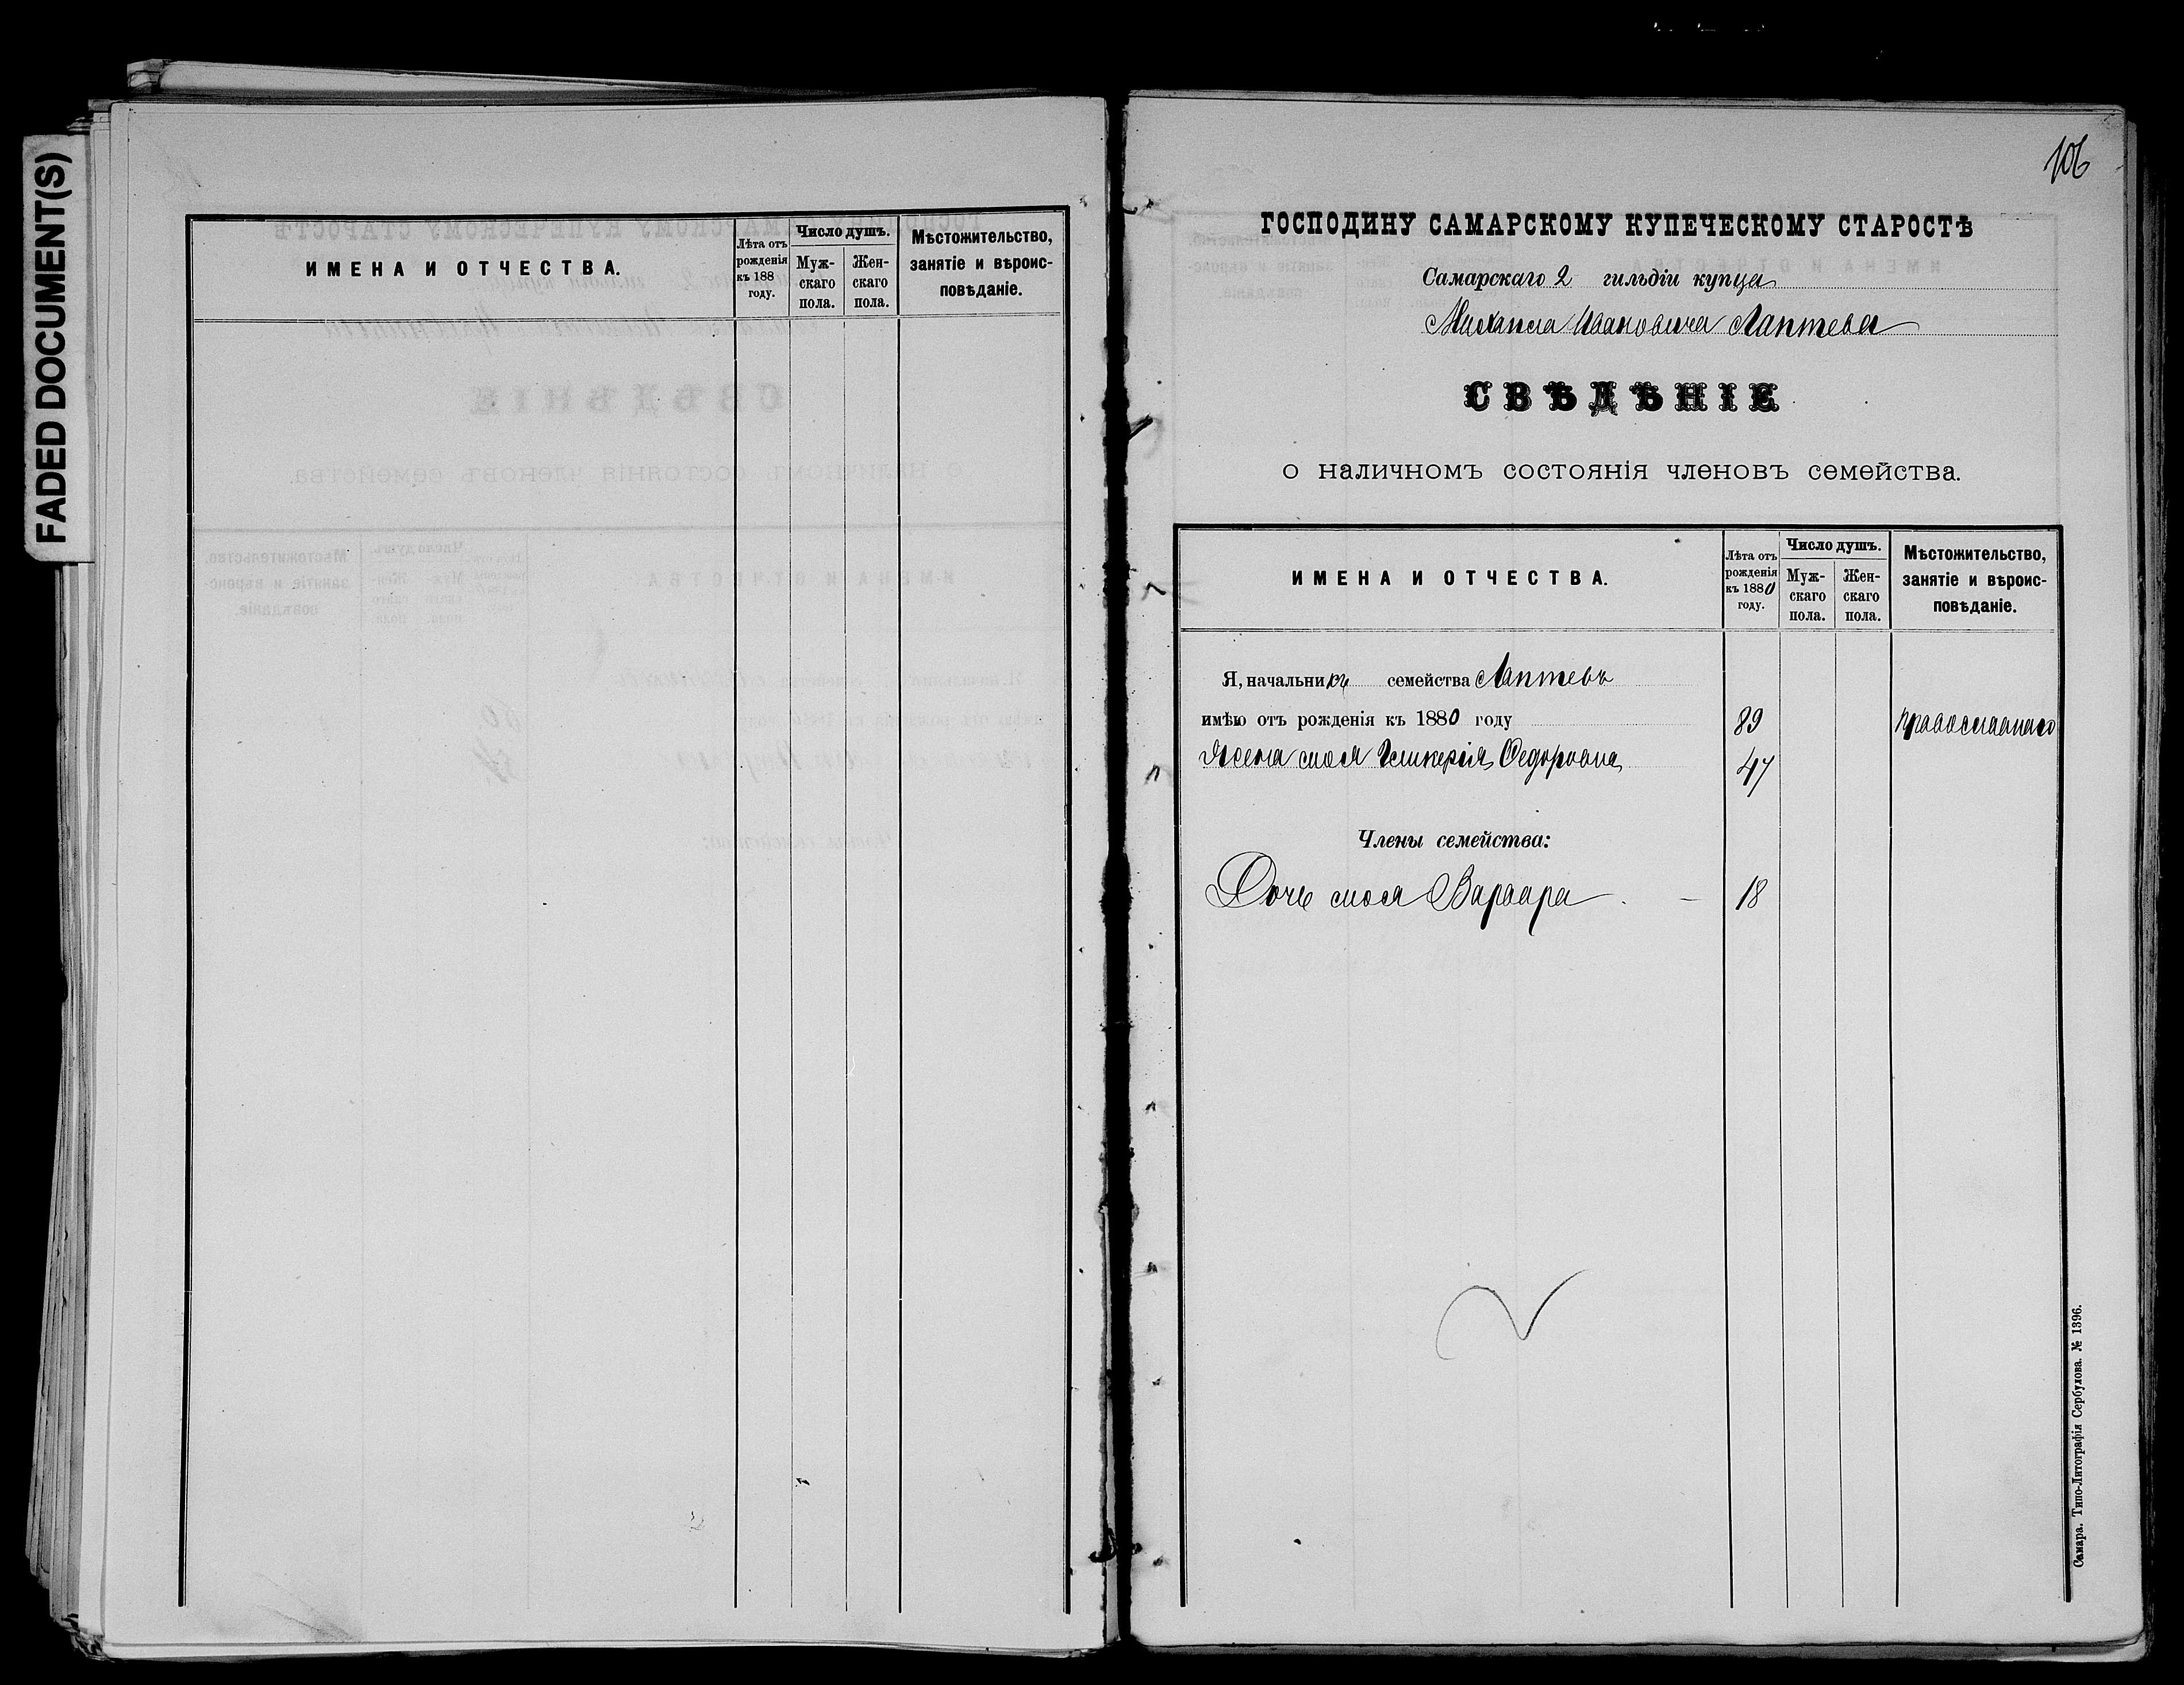 FADED DOCUMENT(S)
ИМЕНА И ОТЧЕСТВА.
Лѣта отъ рожденія къ 188 году.
Число душъ.
Муж-скаго пола.
Жен-скаго пола.
Мѣстожительство, занятіе и вѣроис-повѣданіе.
106
ГОСПОДИНУ САМАРСКОМУ КУПЕЧЕСКОМУ СТАРОСТѢ
Самарскаго 2 гильдіи купца
Михаила Ивановича Лаптева
СВѢДѢНІЕ
о наличномъ состоянія членовъ семейства.
ИМЕНА И ОТЧЕСТВА.
Лѣта отъ рожденія къ 1880 году.
Число душъ.
Муж-скаго пола.
Жен-скаго пола.
Мѣстожительство, занятіе и вѣроис-повѣданіе.
Я, начальникъ семейства Лаптевъ
имѣю отъ рожденія къ 1880 году 89 православнаго
Жена моя Гликерія Федоровна 47
Члены семейства:
Дочь моя Варвара 18
Самара. Типо-Литографія Сербулова. № 1396.